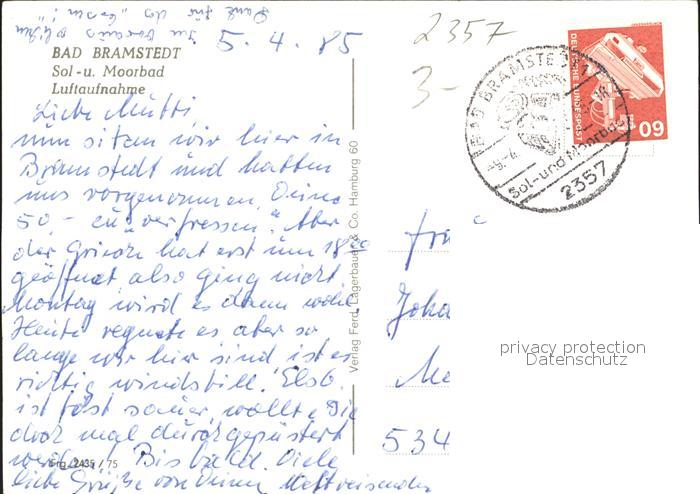 Dank für das "Essen"!
im voraus
5.4.85
BAD BRAMSTEDT
Sol- u. Moorbad
Luftaufnahme
Liebe Mutti,
nun sitzen wir hier in
Bramstedt und hatten
uns vorgenommen, Deine
50,- zu "verfressen". Aber
der Grieche hat erst um 18.00
geöffnet, also ging nicht.
Montag wird es dann wohl.
Heute regnete es aber so
lange wir hier sind ist es
richtig windstill.
ist fast sauer, wollte Sie
doch mal durchgepustert
werden. Bis bald. Viele
liebe Grüße von Deinen Weltreisenden
Org. 2435/75
Verlag Ferd. Lagerbauer & Co. Hamburg 60
2357
3-
BAD BRAMSTEDT 1
Sol- und Moorbad
2357
DEUTSCHE BUNDESPOST
60
Frau
Joha
534
privacy protection
Datenschutz